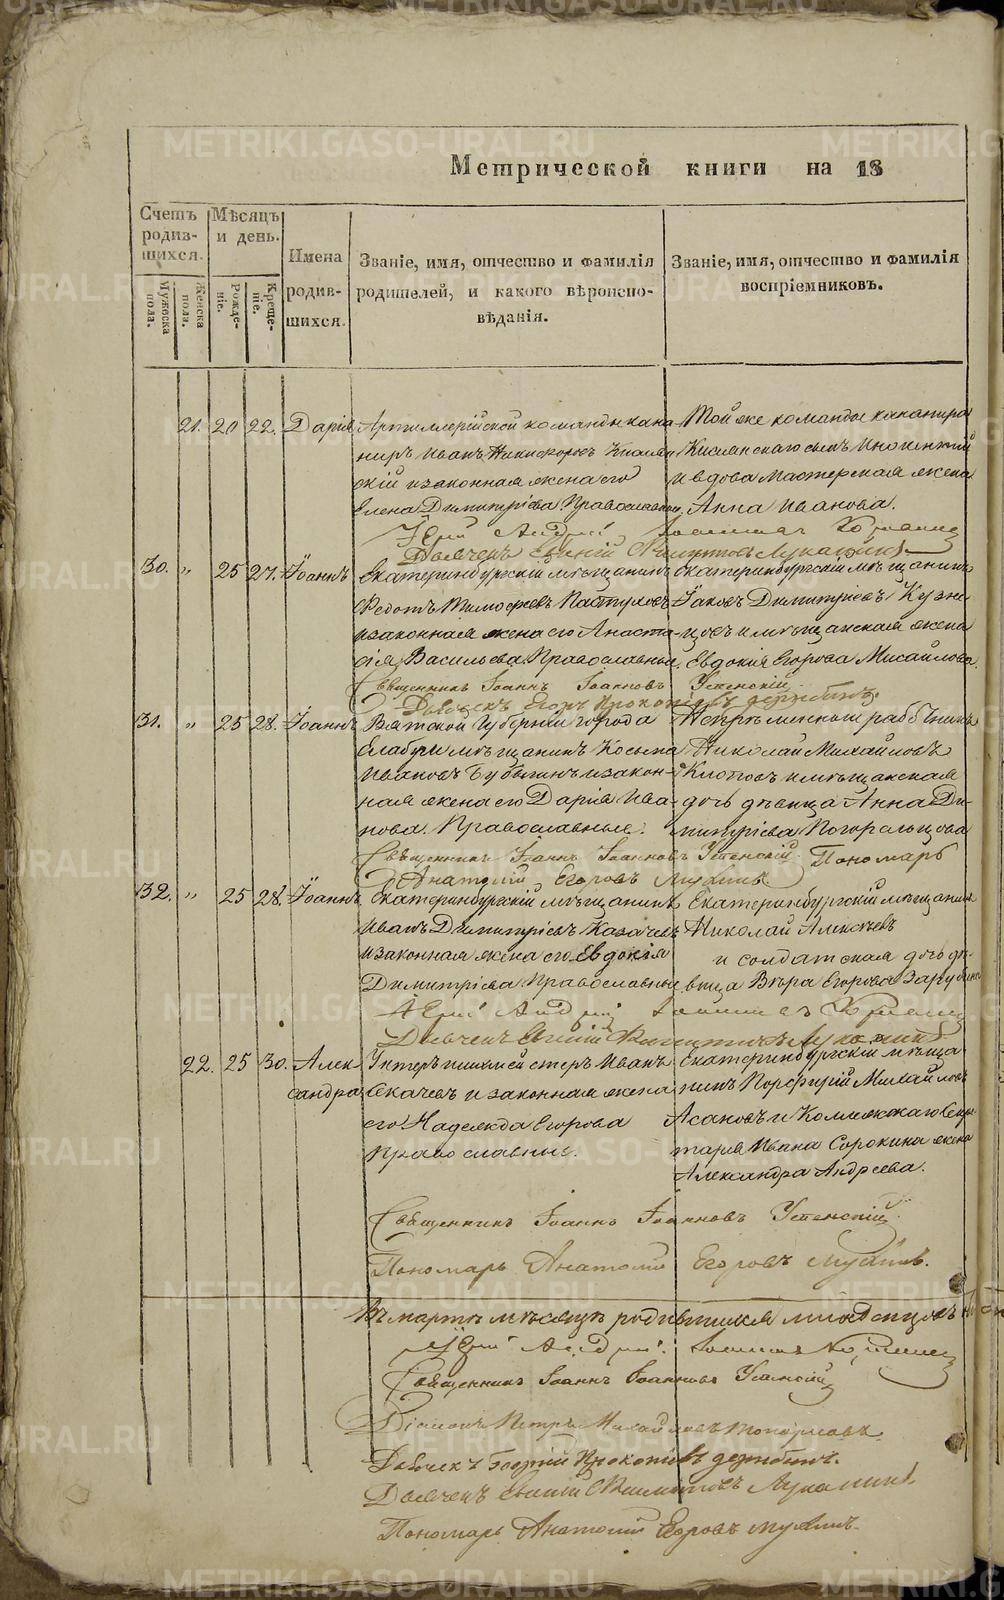 METRIKI.GASO-URAL.RU
Метрической книги на 18
Счетъ родив- шихся.
Мѣсяцъ и день.
Имена родив- шихся.
Званіе, имя, отчество и фамилія родителей, и какого вѣроиспо- вѣданія.
Званіе, имя, отчество и фамилія воспріемниковъ.
Мужеска пола.
Женска пола.
Рожде- ніе.
Креще- ніе.
21. 20 22. Дарія
Артиллерійской команды кано-
ниръ Иванъ Никифоровъ
скій и законная жена его
Елена Димитріева. Православные.
Той же команды канонира
сынъ Инокентій
и вдова мастерская жена
Анна Иванова.
Іерей Андрей
30. „ 25 27. Іоаннъ
Екатеринбургскій мѣщанинъ
Федотъ Тимофеевъ Пастуховъ
и законная жена его Анаста-
сія Васильева. Православные.
Екатеринбургскій мѣщанинъ
Іаковъ Димитріевъ Кузне-
цовъ и мѣщанская жена
Евдокія Егорова Михайлова.
Священникъ Іоаннъ Іоанновъ Успенскій
Дьячекъ Егоръ
31. „ 25 28. Іоаннъ
Вятской Губерніи города
Елабуги мѣщанинъ Косьма
Ивановъ и закон-
ная жена его Дарія Ива-
нова. Православные.
Непремѣнный работникъ
Николай Михайловъ
и мѣщанская
дочь дѣвица Анна Ди-
митріева Погорельцова
Священникъ Іоаннъ Іоанновъ Успенскій. Пономарь
Анатолій Егоровъ
32. „ 25 28. Іоаннъ
Екатеринбургскій мѣщанинъ
Иванъ Димитріевъ Казачевъ
и законная жена его Евдокія
Димитріева. Православные.
Екатеринбургскій мѣщанинъ
Николай Алексѣевъ
и солдатская дочь дѣ-
вица Вѣра Егорова Зарубина
Іерей Андрей
22. 25 30. Алек-
сандра
Унтеръ шихмейстеръ Иванъ
Секачевъ и законная жена
его Надежда Егорова
Православные.
Екатеринбургскій мѣща-
нинъ Порфирій Михайловъ
Асановъ и Коллежскаго Секре-
таря Ивана Сорокина жена
Александра Андреева.
Священникъ Іоаннъ Іоанновъ Успенскій
Пономарь Анатолій Егоровъ
Въ мартѣ мѣсяцѣ родившихся младенцевъ
Іерей Андрей
Священникъ Іоаннъ Іоанновъ Успенскій
Діаконъ Петръ Михайловъ Топорковъ
Дьячекъ Георгій
Дьячекъ Евгеній
Пономарь Анатолій Егоровъ